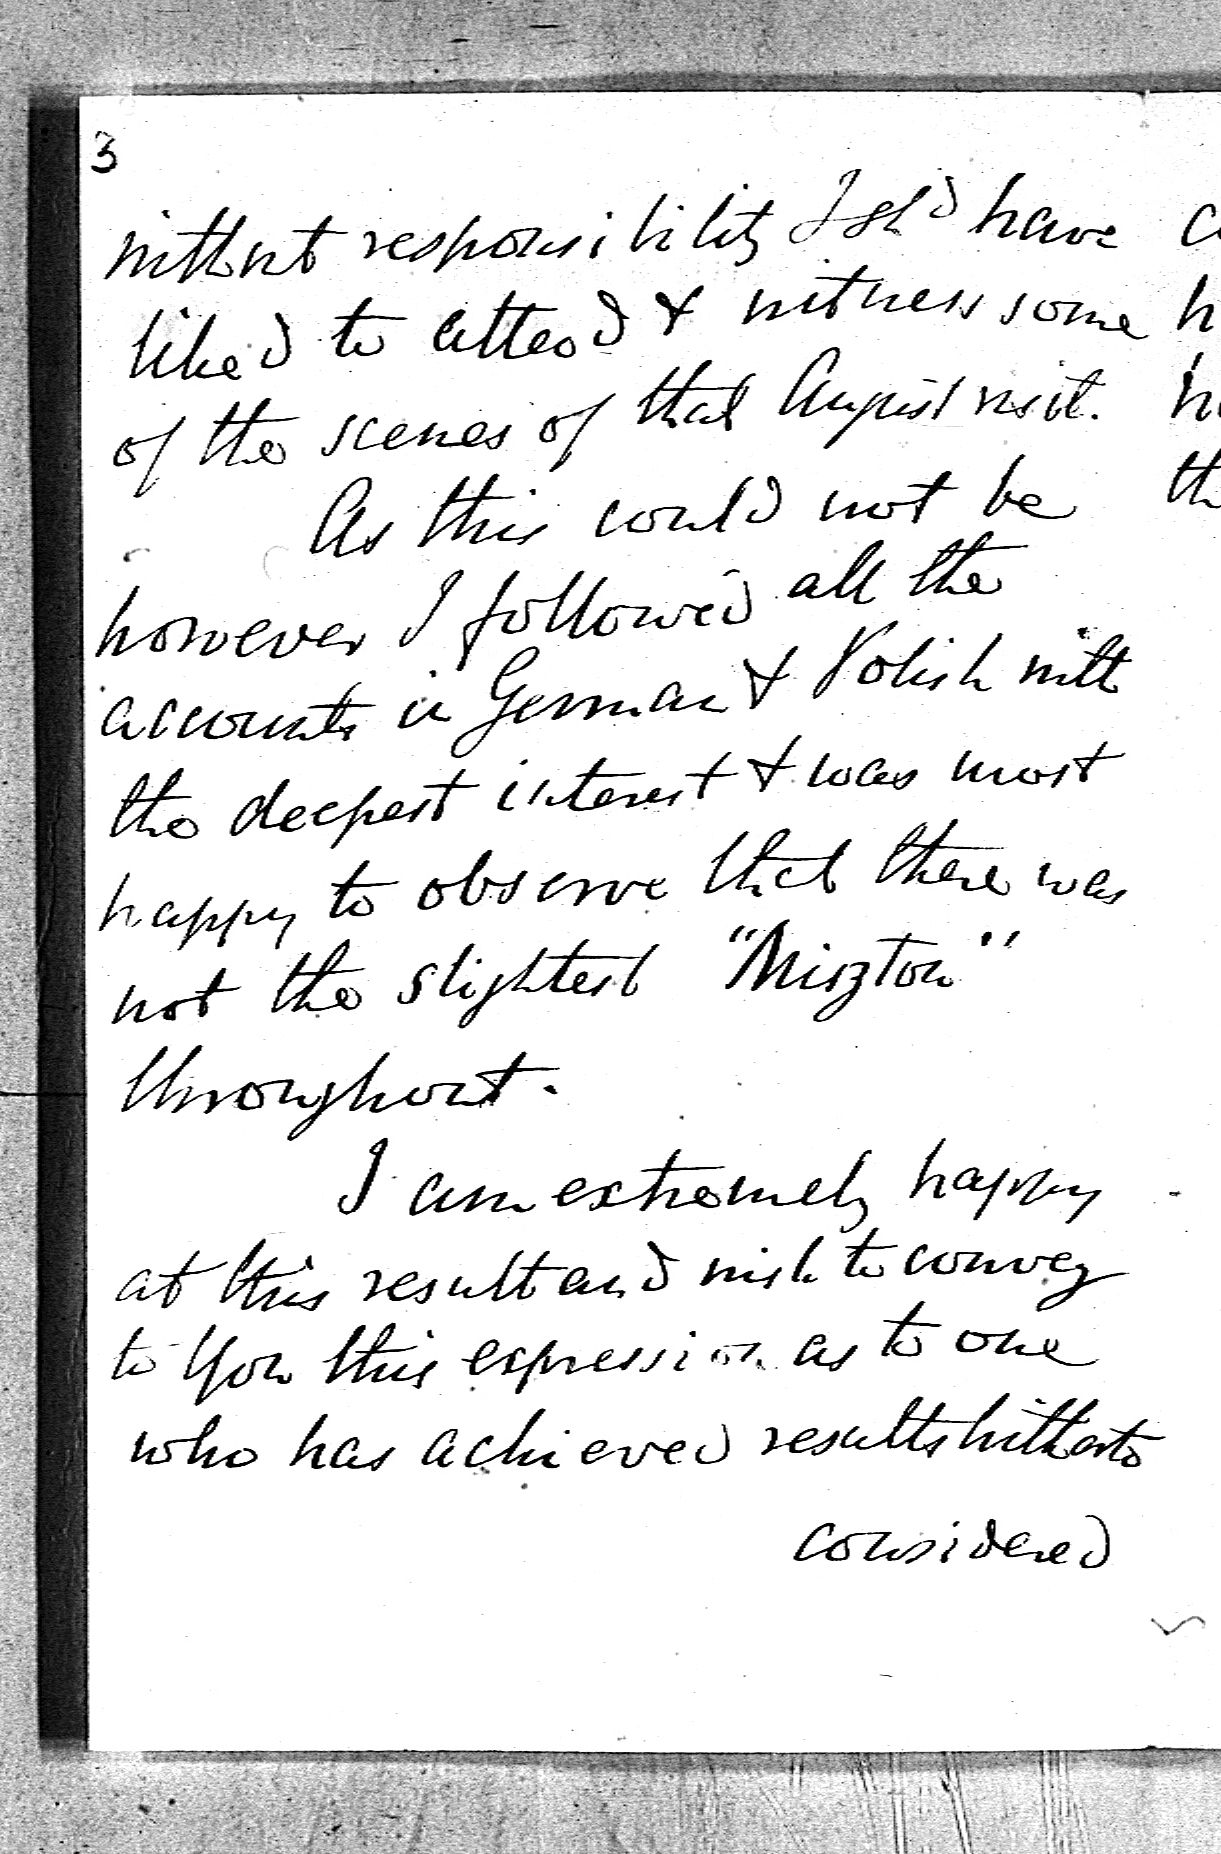 3
without responsibility I shd have
liked to attend & witness some
of the scenes of that August visit.
As this could not be
however I followed all the
accounts in German & Polish with
the deepest interest & was most
happy to observe that there was
not the slightest "Miszton"
throughout.
I am extremely happy
at this result and wish to convey
to You this expression as to one
who has achieved results hitherto
considered